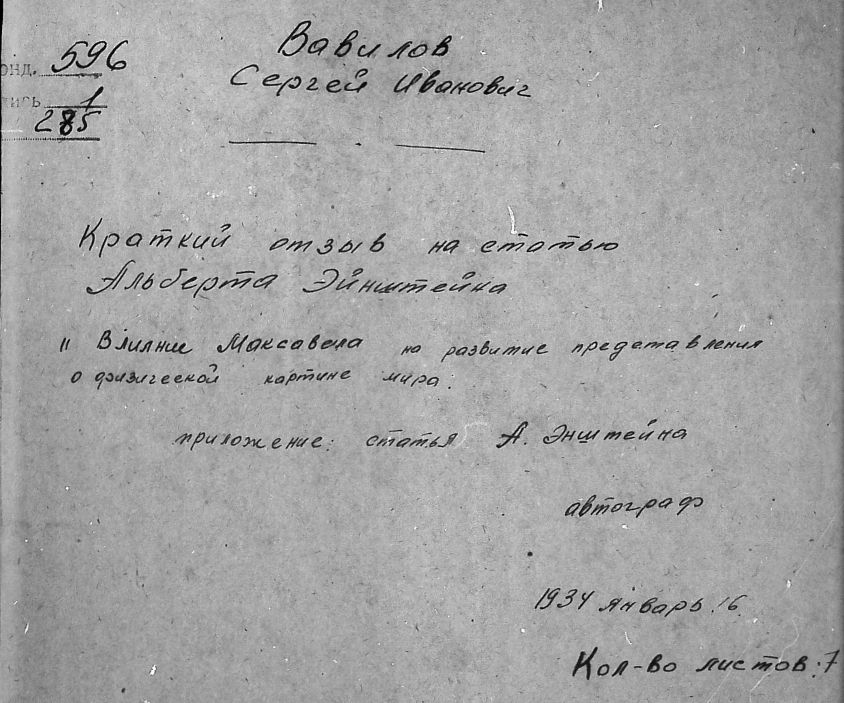 онд. 596
пись 1
285
Вавилов
Сергей Иванович
Краткий отзыв на статью
Альберта Эйнштейна
" Влияние Максавела на развитие представления
о физической картине мира.
приложение: статья А. Энштейна
автограф
1934 январь 16
Кол-во листов: 7